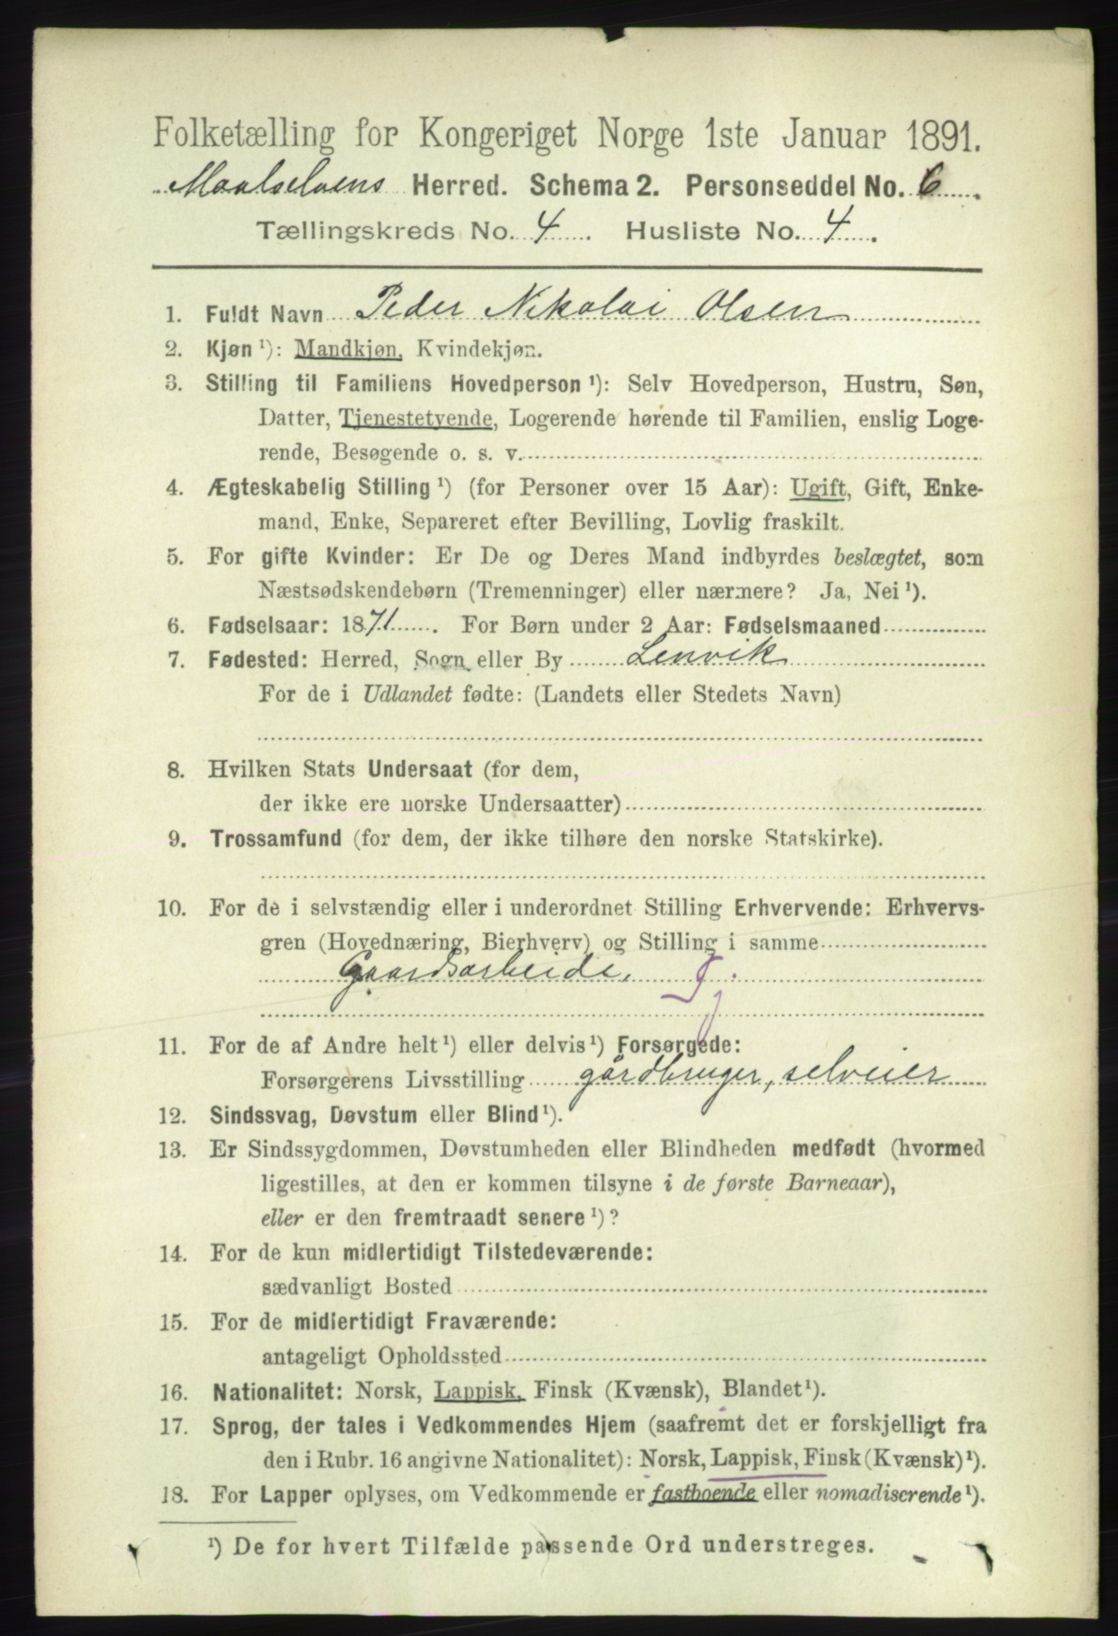 Folketælling for Kongeriget Norge 1ste Januar 1891.
Maalselvens Herred. Schema 2. Personseddel No. 6.
Tællingskreds No. 4. Husliste No. 4.
1. Fuldt Navn Peder Nikolai Olsen
2. Kjøn ¹): Mandkjøn, Kvindekjøn.
3. Stilling til Familiens Hovedperson ¹): Selv Hovedperson, Hustru, Søn,
Datter, Tjenestetyende, Logerende hørende til Familien, enslig Loge-
rende, Besøgende o. s. v.
4. Ægteskabelig Stilling ¹) (for Personer over 15 Aar): Ugift, Gift, Enke-
mand, Enke, Separeret efter Bevilling, Lovlig fraskilt.
5. For gifte Kvinder: Er De og Deres Mand indbyrdes beslægtet, som
Næstsødskendebørn (Tremenninger) eller nærmere? Ja, Nei ¹).
6. Fødselsaar: 1871. For Børn under 2 Aar: Fødselsmaaned
7. Fødested: Herred, Sogn eller By Lenvik
For de i Udlandet fødte: (Landets eller Stedets Navn)
8. Hvilken Stats Undersaat (for dem,
der ikke ere norske Undersaatter)
9. Trossamfund (for dem, der ikke tilhøre den norske Statskirke).
10. For de i selvstændig eller i underordnet Stilling Erhvervende: Erhvervs-
gren (Hovednæring, Bierhverv) og Stilling i samme
Gaardsarbeide.
11. For de af Andre helt ¹) eller delvis ¹) Forsørgede:
Forsørgerens Livsstilling gårdbruger, selveier
12. Sindssvag, Døvstum eller Blind ¹).
13. Er Sindssygdommen, Døvstumheden eller Blindheden medfødt (hvormed
ligestilles, at den er kommen tilsyne i de første Barneaar),
eller er den fremtraadt senere ¹)?
14. For de kun midlertidigt Tilstedeværende:
sædvanligt Bosted
15. For de midlertidigt Fraværende:
antageligt Opholdssted
16. Nationalitet: Norsk, Lappisk, Finsk (Kvænsk), Blandet ¹).
17. Sprog, der tales i Vedkommendes Hjem (saafremt det er forskjelligt fra
den i Rubr. 16 angivne Nationalitet): Norsk, Lappisk, Finsk (Kvænsk) ¹).
18. For Lapper oplyses, om Vedkommende er fastboende eller nomadiserende ¹).
¹) De for hvert Tilfælde passende Ord understreges.